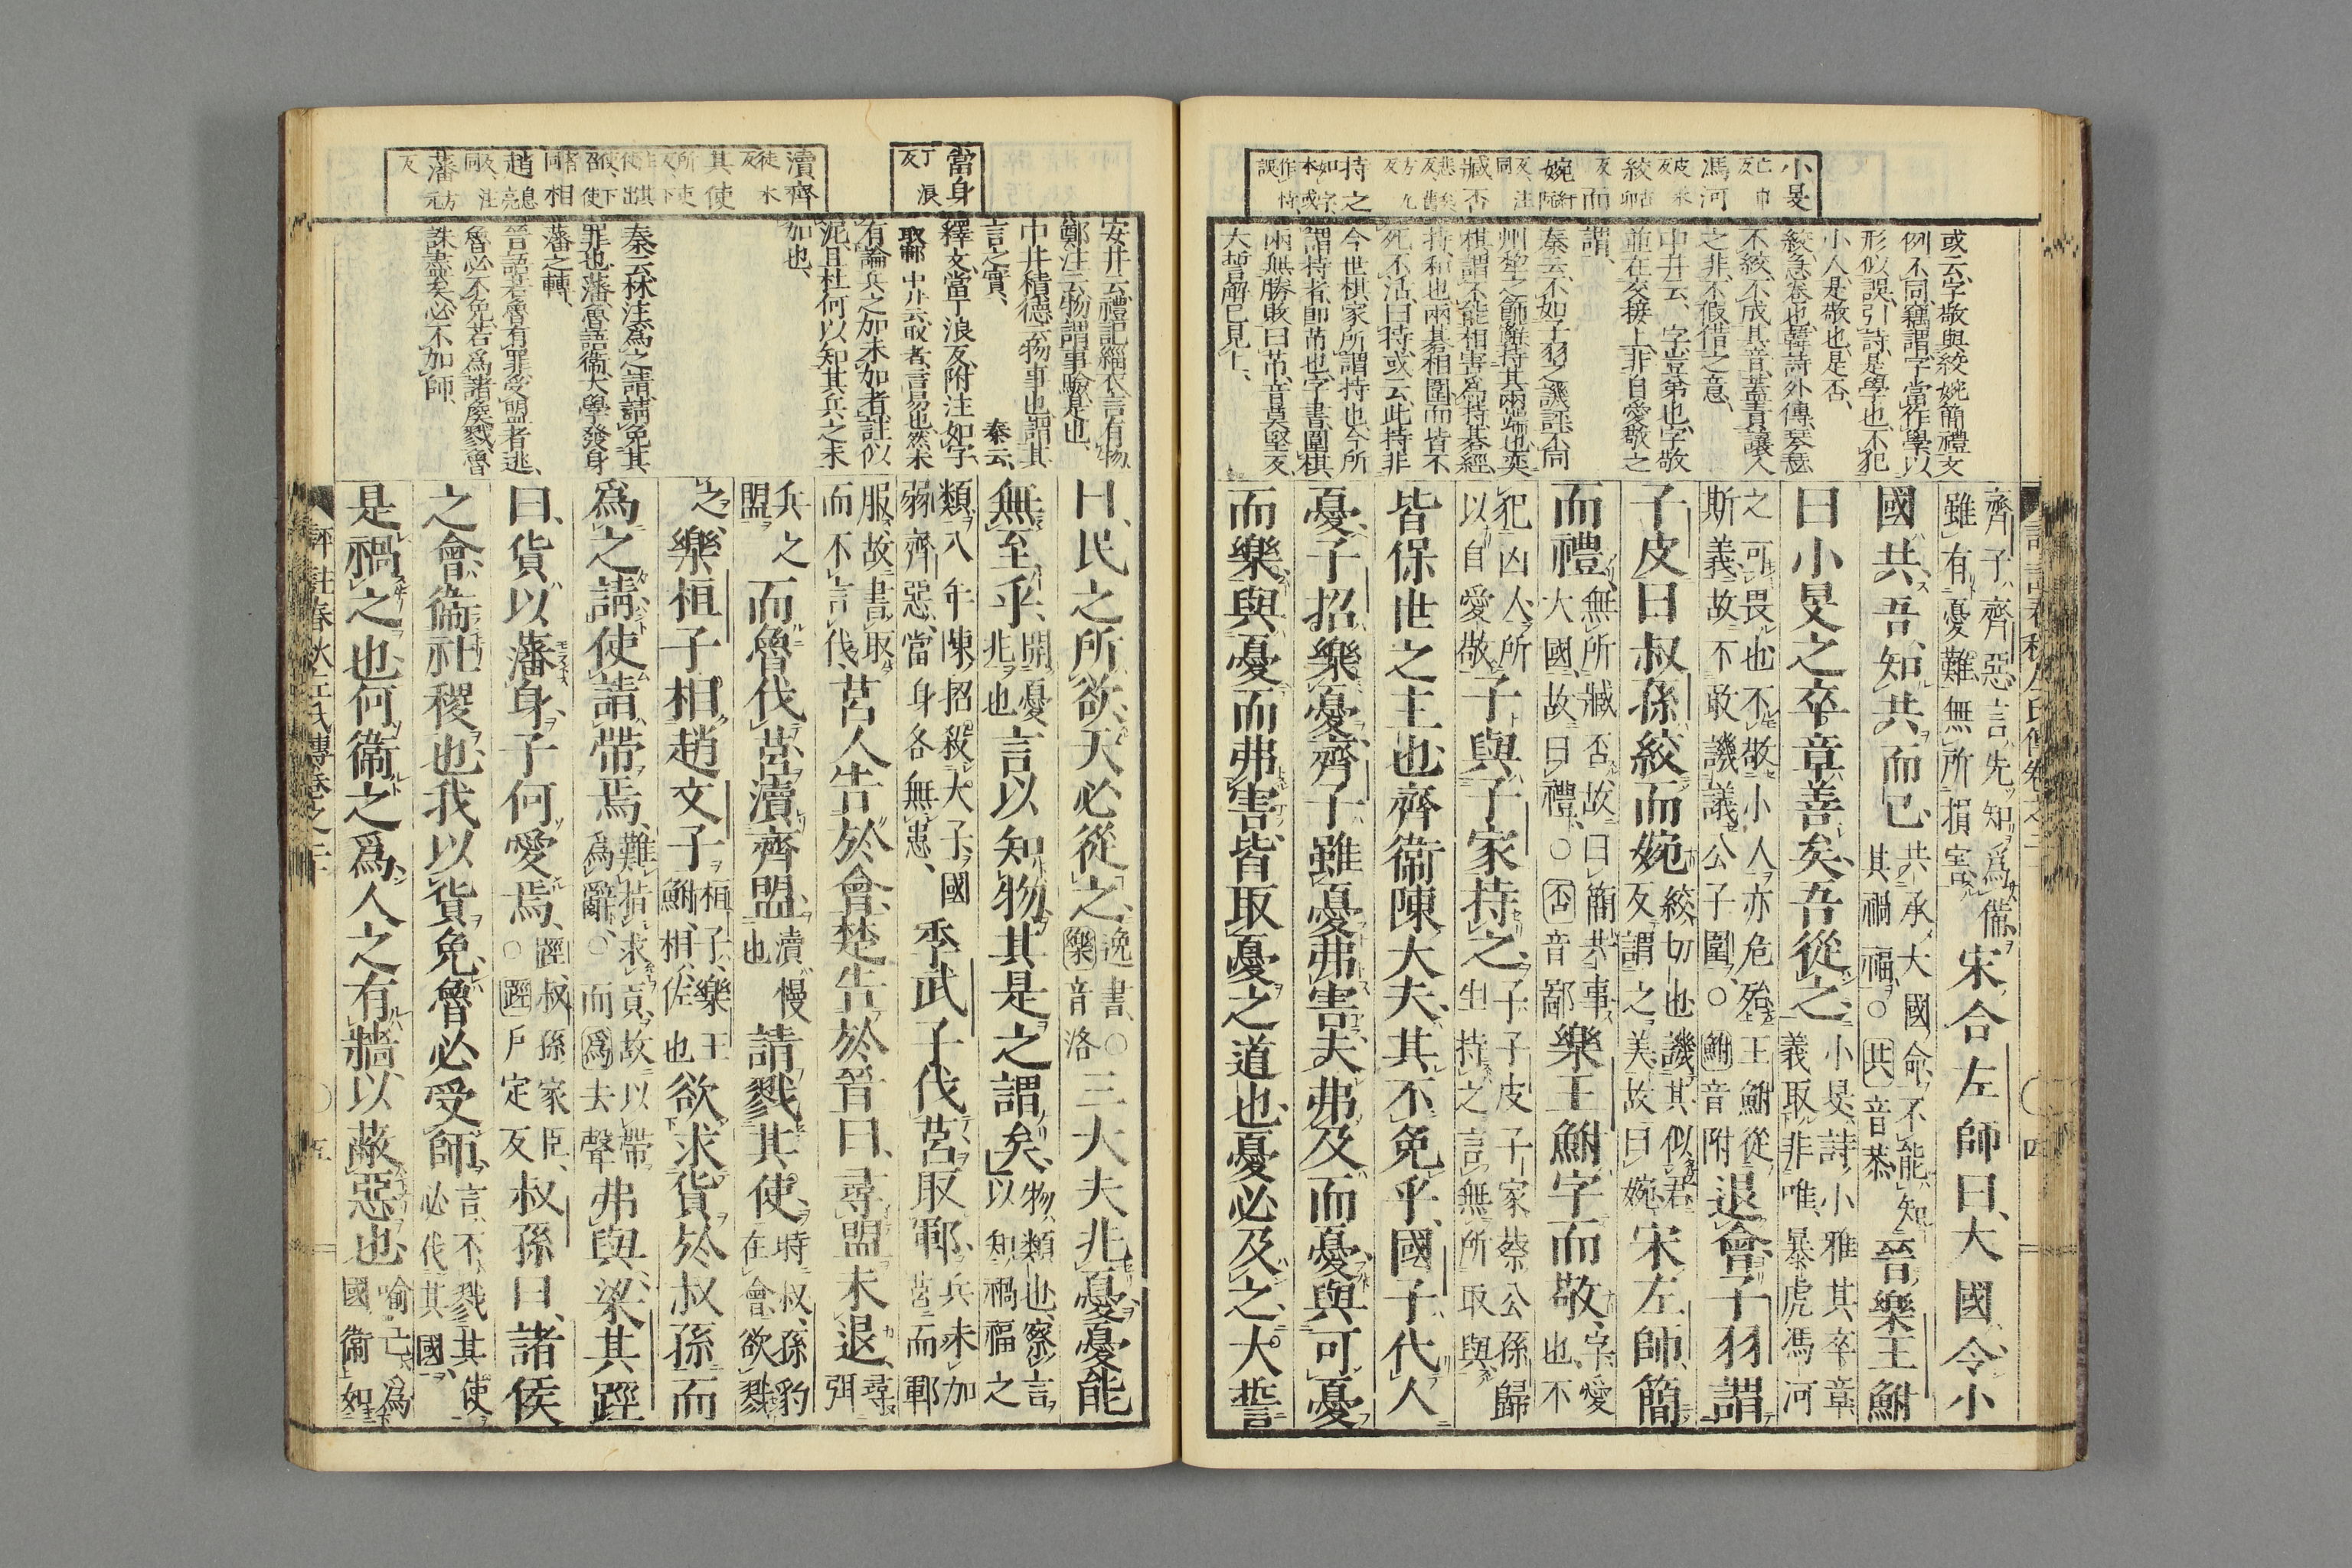 小旻
亡巾反
馮河
皮冰反
絞
古卯反
而
婉
紆阮反、注同
臧否
悲矣反、舊方九反
持之
如字、本或作恃、誤
或云、字敬與絞婉簡禮文
例不同、竊謂字當作學、以
形似誤、引詩是學也、不犯
小人、是敬也、是否、
絞、急卷也、韓詩外傳、琴瑟
不絞、不成其音、蓋責讓人
之非、不假借之意、
中井云、字豈弟也、字敬
並在交接上、非自愛敬之
謂、
秦云、不如子羽之譏評、不同
州犂之飾辭、持其兩端也、奕
棋謂不能相害爲持、棊經
持、和也、兩棊相圍而皆不
死不活曰持、或云、此持非
今世棋家所謂持也、今所
謂持者、卽芇也、字書、圍棋
兩無勝敗曰芇、音莫堅反、
大誓解已見上、
齊子、齊惡、言先知爲備、
雖有憂難、無所損害、
宋合左師曰、大國令小
國共、吾知共而已、
共承大國命、不能知
其禍福、○共音恭
晉樂王鮒
曰、小旻之卒章善矣、吾從之、
小旻、詩小雅、其卒章
義取非唯暴虎馮河
之可畏也、不敬小人亦危殆、王鮒從
斯義、故不敢譏議公子圍、○鮒音附
退會、子羽謂
子皮曰、叔孫絞而婉、
絞、切也、譏其似君、
反謂之美、故曰婉、
宋左師簡
而禮、
無所臧否、故曰簡、共事
大國、故曰禮、○否音鄙
樂王鮒字而敬、
字、愛也、不
犯凶人、所
以自愛敬
子與子家持之、
子、子皮、子家、蔡公孫歸
生、持之、言無所取與、
皆保世之主也、齊衞陳大夫、其不免乎、國子代人
憂、子招樂憂、齊子雖憂弗害、夫弗及而憂、與可憂
而樂、與憂而弗害、皆取憂之道也、憂必及之、大誓
評註春秋左氏傳卷之二十
四
當身
丁浪反
瀆齊
徒木反
其使
所使反、下
出其使、下
召使者同
相趙
息亮反、注同
藩
方元反
安井云、禮記緇衣言有物
鄭注云、物謂事驗、是也、
中井積德云、物事也、謂其
言之實、
秦云、
釋文、當、丁浪反、附注如字、
取鄆 中井云、取者、言易也、然未
有論兵之加未加者、註似
泥、且杜何以知其兵之未
加也、
秦云、林注爲之請、請免其
罪也、藩、魯語衞、大學發身
藩之轉、
晉語、若魯有罪、受盟者逃、
魯必不免、若爲諸侯戮、魯
誅盡矣、必不加師、
曰、民之所欲、天必從之、
逸書、○
樂音洛
三大夫兆憂、憂能
無至乎、
開憂
兆也
言以知物、其是之謂矣、
物、類也、察言
以知禍福之
類、八年、陳招殺大子、國
弱、齊惡、當身各無患、
季武子伐莒取鄆、
兵未加
莒而鄆
服、故書取
而不言伐、
莒人告於會、楚告於晉曰、尋盟未退、
尋弭
兵之盟、
而魯伐莒、瀆齊盟、
瀆、慢也
請戮其使、
時叔孫豹
在會、欲戮
之、
樂桓子相趙文子、
桓子、樂王
鮒、相、佐也
欲求貨於叔孫、而
爲之請、使請帶焉、
難指求貨、故以帶
爲辭、○而爲去聲
弗與、梁其踁
曰、貨以藩身、子何愛焉、
踁、叔孫家臣、
○踁戶定反
叔孫曰、諸侯
之會、衞社稷也、我以貨免、魯必受師、
言不戮其使、
必伐其國、
是禍之也、何衞之爲、人之有牆、以蔽惡也、
喻己爲
國衞、如
評註春秋左氏傳卷之二十
五